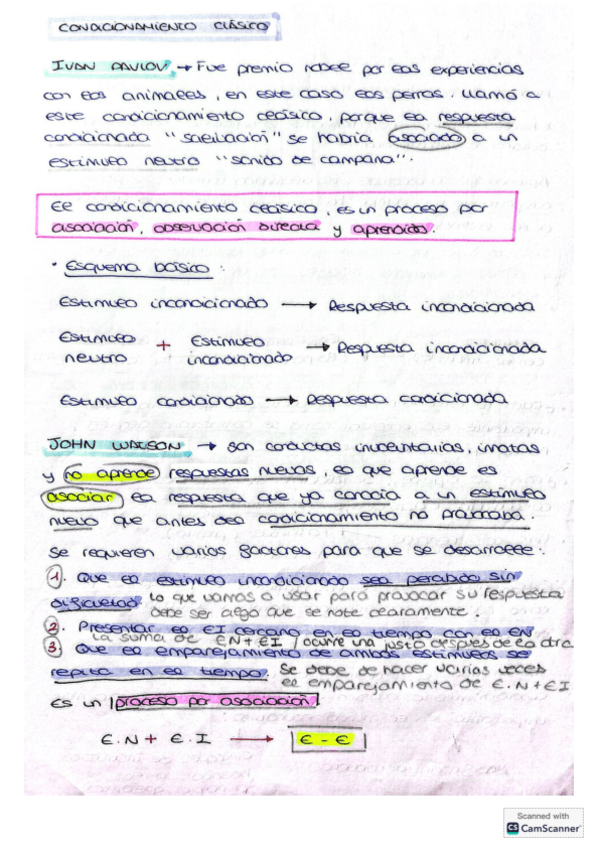 CONDICIONAMIENTO CLÁSICO
IVAN PAVLOV → Fue premio nobel por las experiencias
con los animales, en este caso los perros. Llamó a
este condicionamiento clásico, porque la respuesta
condicionada "salivación" se había asociado a un
estímulo neutro "sonido de campana".
El condicionamiento clásico, es un proceso por
asociación, observación directa y aprendido.
· Esquema básico:
Estímulo incondicionado → Respuesta incondicionada
Estímulo neutro + Estímulo incondicionado → Respuesta incondicionada
Estímulo condicionado → Respuesta condicionada
JOHN WATSON → son conductas involuntarias, innatas
y no aprende respuestas nuevas, lo que aprende es
asociar la respuesta que ya conocía a un estímulo
nuevo que antes del condicionamiento no provocaba.
Se requieren varios factores para que se desarrolle:
1. Que el estímulo incondicionado sea percibido sin
dificultad. Lo que vamos a usar para provocar su respuesta
debe ser algo que se note claramente.
2. Presentar el EI cercano en el tiempo con el EN
La suma de EN+EI / ocurre una justo después de la otra
3. Que el emparejamiento de ambos estímulos se
repita en el tiempo. Se debe de hacer varias veces
el emparejamiento de E.N+E.I
Es un proceso por asociación
E.N + E.I → E - E
Scanned with
CS CamScanner